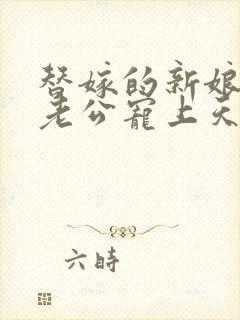 替嫁的新娘
老公寵上天
六時